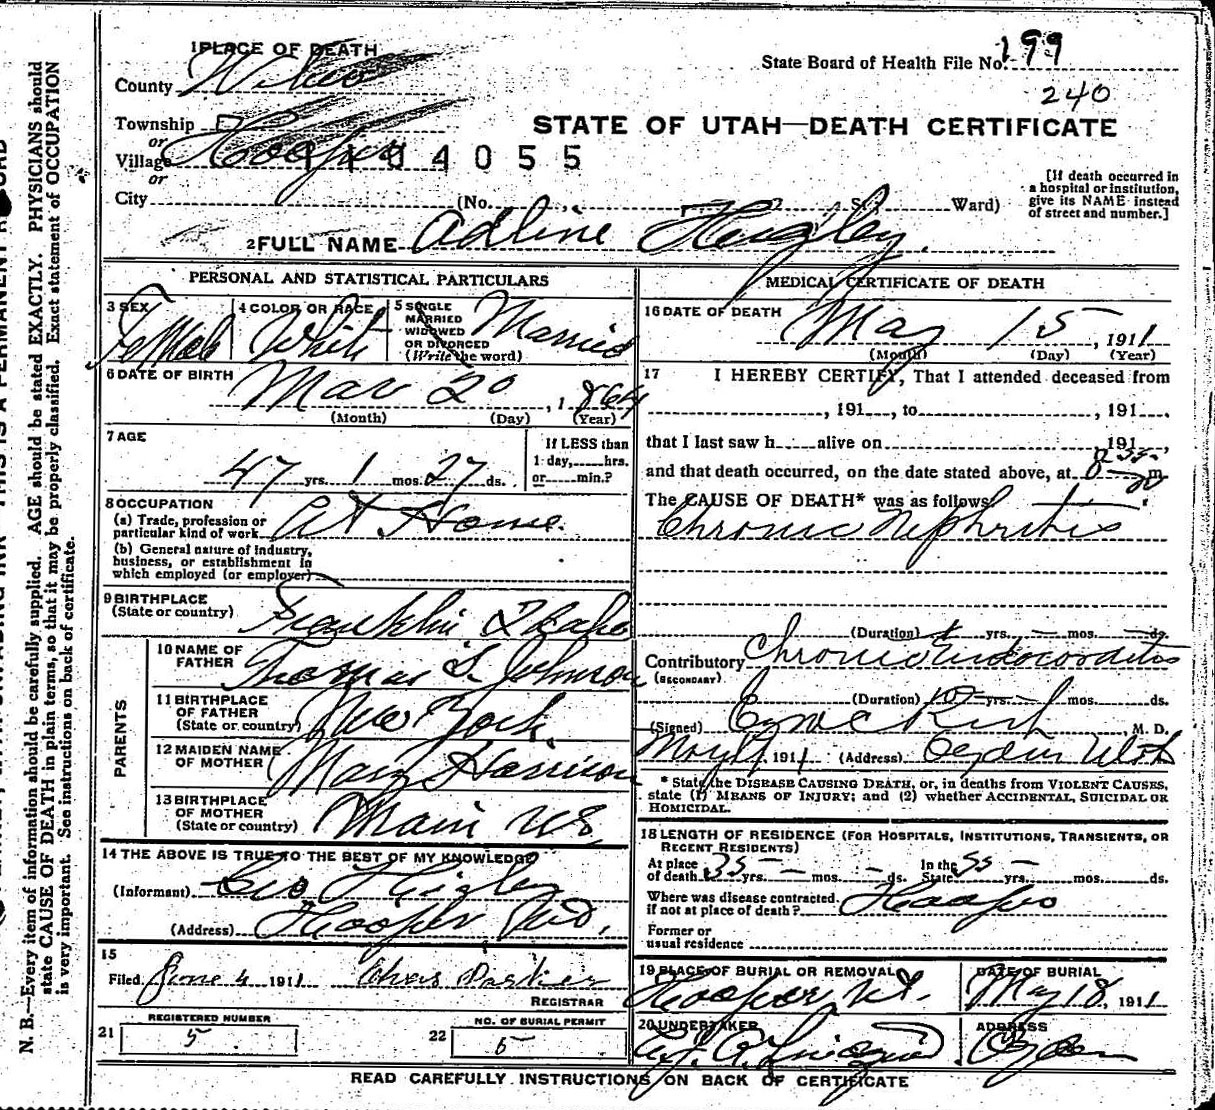 1 PLACE OF DEATH
State Board of Health File No. 199
County Weber
240
Township
or
Village Hooper
1104055
or
City (No. , St. Ward)
STATE OF UTAH—DEATH CERTIFICATE
[If death occurred in
a hospital or institution,
give its NAME instead
of street and number.]
2 FULL NAME Adline Higley.
PERSONAL AND STATISTICAL PARTICULARS
3 SEX Female
4 COLOR OR RACE White
5 SINGLE
MARRIED
WIDOWED
OR DIVORCED
(Write the word) Married
6 DATE OF BIRTH
Mar 20, 1864
(Month) (Day) (Year)
7 AGE
47 yrs. 1 mos. 27 ds.
If LESS than
1 day, hrs.
or min.?
8 OCCUPATION
(a) Trade, profession or
particular kind of work At Home.
(b) General nature of industry,
business, or establishment in
which employed (or employer)
9 BIRTHPLACE
(State or country) Franklin Idaho
PARENTS
10 NAME OF
FATHER Thomas S. Johnson
11 BIRTHPLACE
OF FATHER
(State or country) New York.
12 MAIDEN NAME
OF MOTHER Mary Harrison
13 BIRTHPLACE
OF MOTHER
(State or country) Main US.
14 THE ABOVE IS TRUE TO THE BEST OF MY KNOWLEDGE
(Informant) Geo Higley
(Address) Hooper
15
Filed June 4 1911 Chas Parker
REGISTRAR
21 REGISTERED NUMBER
5
22 NO. OF BURIAL PERMIT
5
MEDICAL CERTIFICATE OF DEATH
16 DATE OF DEATH
May 15, 1911
(Month) (Day) (Year)
17 I HEREBY CERTIFY, That I attended deceased from
, 191 , to , 191 ,
that I last saw h alive on 191 ,
and that death occurred, on the date stated above, at m
The CAUSE OF DEATH* was as follows:
Chronic Nephritis
(Duration) yrs. mos. ds.
Contributory Chronic Endocarditis
(SECONDARY)
(Duration) mos. ds.
(Signed) M. D.
May 1911 (Address) Ogden Utah
* State the DISEASE CAUSING DEATH, or, in deaths from VIOLENT CAUSES,
state (1) MEANS OF INJURY; and (2) whether ACCIDENTAL, SUICIDAL OR
HOMICIDAL.
18 LENGTH OF RESIDENCE (FOR HOSPITALS, INSTITUTIONS, TRANSIENTS, OR
RECENT RESIDENTS)
At place
of death 35 yrs. mos. ds.
In the
State yrs. mos. ds.
Where was disease contracted.
if not at place of death? Hooper
Former or
usual residence
19 PLACE OF BURIAL OR REMOVAL
Hooper Ut.
DATE OF BURIAL
May 18, 1911
20 UNDERTAKER
ADDRESS
Ogden
READ CAREFULLY INSTRUCTIONS ON BACK OF CERTIFICATE
N. B.—Every item of information should be carefully supplied. AGE should be stated EXACTLY. PHYSICIANS should
state CAUSE OF DEATH in plain terms, so that it may be properly classified. Exact statement of OCCUPATION
is very important. See instructions on back of certificate.